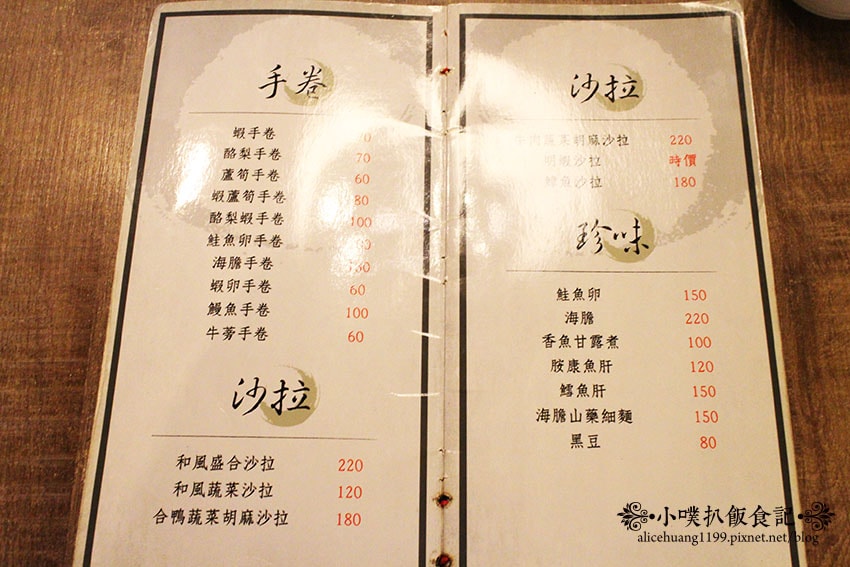 手卷
蝦手卷
酪梨手卷 70
蘆筍手卷 60
蝦蘆筍手卷 80
酪梨蝦手卷 100
鮭魚卵手卷
海膽手卷
蝦卵手卷 60
鰻魚手卷 100
牛蒡手卷 60
沙拉
和風盛合沙拉 220
和風蔬菜沙拉 120
合鴨蔬菜胡麻沙拉 180
沙拉
蔬菜胡麻沙拉 220
沙拉 時價
沙拉 180
珍味
鮭魚卵 150
海膽 220
香魚甘露煮 100
胺康魚肝 120
鱈魚肝 150
海膽山藥細麵 150
黑豆 80
小噗扒飯食記
alicehuang1199.pixnet.net/blog